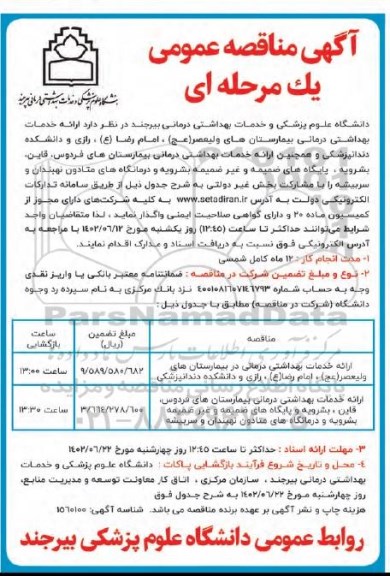 آگهی مناقصه عمومی
یک مرحله ای
دانشگاه علوم پزشکی و خدمات بهداشتی درمانی بیرجند
دانشگاه علوم پزشکی و خدمات بهداشتی درمانی بیرجند در نظر دارد ارائه خدمات
بهداشتی درمانی بیمارستان های ولیعصر(عج) ، امام رضا (ع) ، رازی و دانشکده
دندانپزشکی و همچنین ارائه خدمات بهداشتی درمانی بیمارستان های فردوس، قاین،
بشرویه ، پایگاه های ضمیمه و غیر ضمیمه بشرویه و درمانگاه های متادون نهبندان و
سربیشه را با مشارکت بخش غیر دولتی به شرح جدول ذیل از طریق سامانه تدارکات
الکترونیکی دولت به آدرس www.setadiran.ir به کلیه شرکت‌های دارای مجوز از
کمیسیون ماده ۲۰ و دارای گواهی صلاحیت ایمنی واگذار نماید ، لذا متقاضیان واجد
شرایط می‌توانند حداکثر تا ساعت (۱۲:۴۵) روز یکشنبه مورخ ۱۴۰۲/۰۶/۱۲ با مراجعه به
آدرس الکترونیکی فوق نسبت به دریافت اسناد و مدارک اقدام نمایند.
۱- مدت انجام کار : ۱۲ ماه کامل شمسی
۲- نوع و مبلغ تضمین شرکت در مناقصه : ضمانتنامه معتبر بانکی یا واریز نقدی
وجه به حساب شماره ۴۰۰۱۰۸۱۶۰۷۱۴۶۷۹۳ نزد بانک مرکزی به نام سپرده رد وجوه
دانشگاه (شرکت در مناقصه) مطابق با جدول ذیل :
مناقصه مبلغ تضمین (ریال) ساعت بازگشایی
ارائه خدمات بهداشتی درمانی در بیمارستان های
ولیعصر(عج) ، امام رضا(ع) ، رازی و دانشکده دندانپزشکی ۹/۵۸۹/۵۸۰/۶۸۲ ساعت ۱۳:۰۰
ارائه خدمات بهداشتی درمانی بیمارستان های فردوس،
قاین ، بشرویه و پایگاه های ضمیمه و غیر ضمیمه ۳/۱۶۴/۲۷۸/۶۰۰ ساعت ۱۳:۳۰
بشرویه و درمانگاه های متادون نهبندان و سربیشه
۳- مهلت ارائه اسناد : حداکثر تا ساعت ۱۲:۴۵ روز چهارشنبه مورخ ۱۴۰۲/۰۶/۲۲
۴- محل و تاریخ شروع فرآیند بازگشایی پاکات : دانشگاه علوم پزشکی و خدمات
بهداشتی درمانی بیرجند ، سازمان مرکزی ، اتاق کار معاونت توسعه و مدیریت منابع،
روز چهارشنبه مورخ ۱۴۰۲/۰۶/۲۲ به شرح جدول فوق
هزینه چاپ و نشر آگهی بر عهده برنده مناقصه می باشد. شناسه آگهی: ۱۵۶۰۱۰۰
روابط عمومی دانشگاه علوم پزشکی بیرجند
ParsNamadData